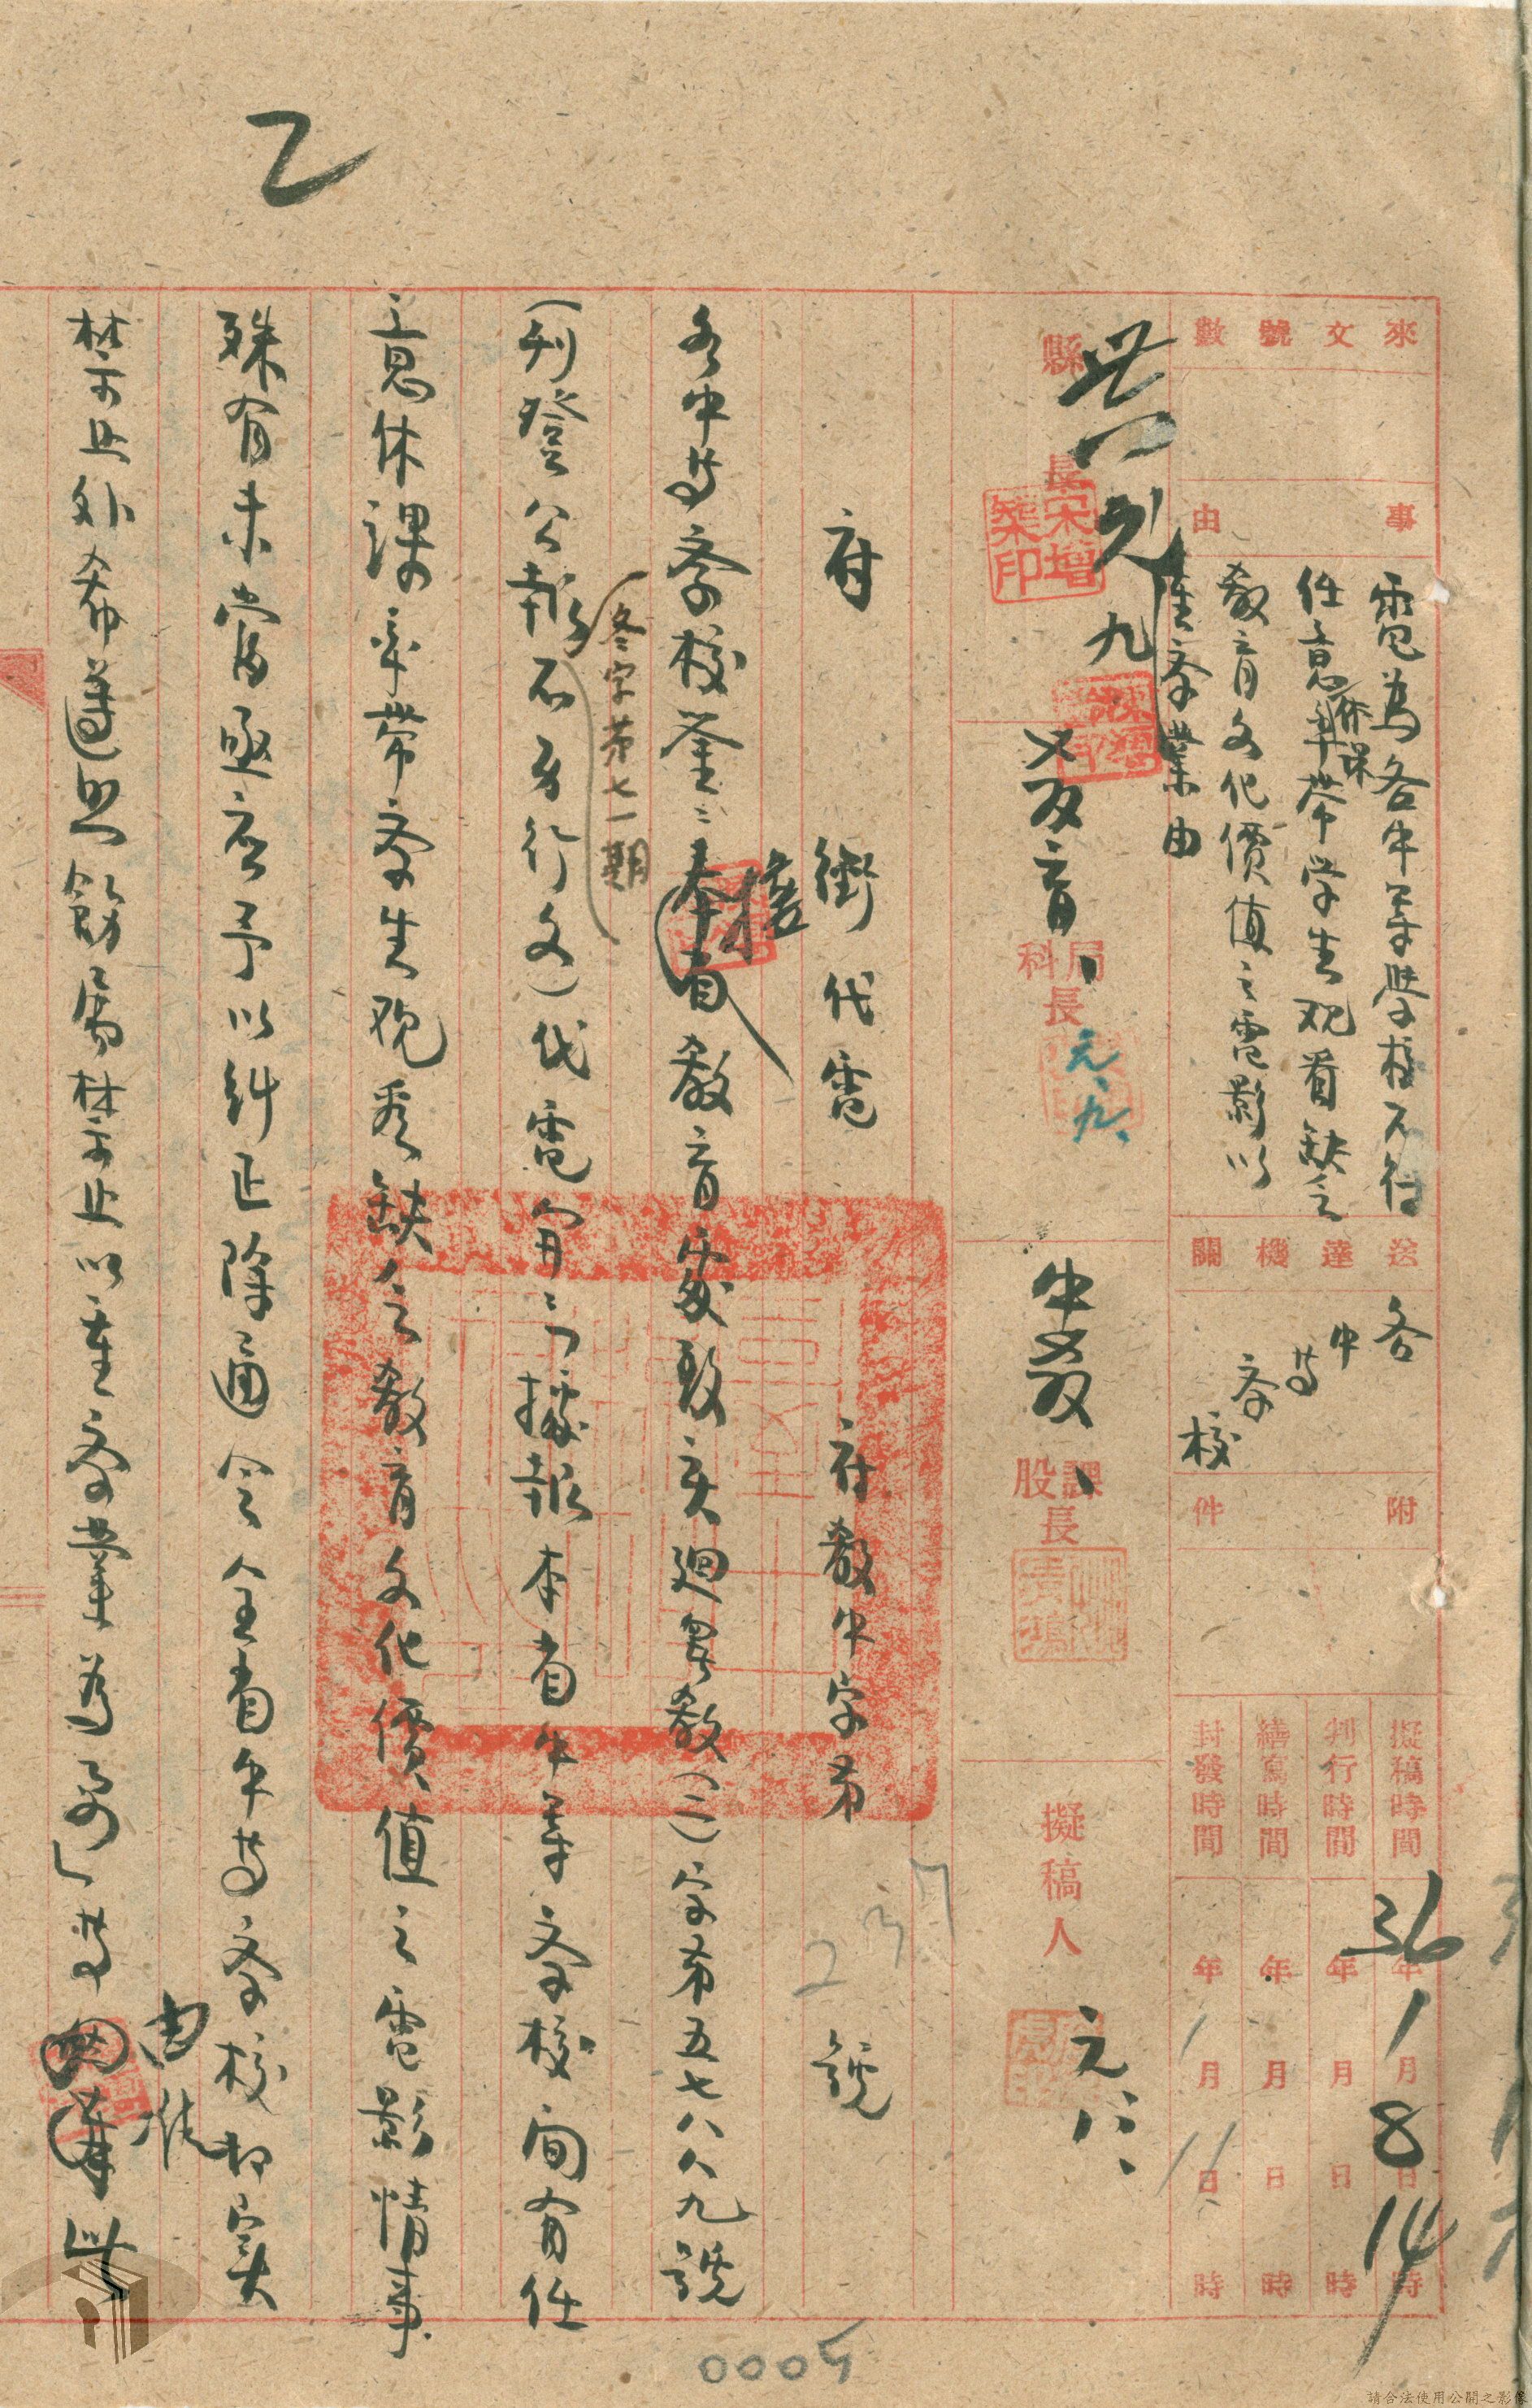 來文號數
事由
電為各中等學校不得
任意休課率帶学生观看缺乏
教育文化價值之電影以
重學業由
送達機關
各中等學校
附件
擬稿時間 36年1月8日14時
判行時間 年月日時
繕寫時間 年月日時
封發時間 年1月11日時
縣長
宋增榘印
元九
教育
局科長
元、九、
中教
課股長
擬稿人
元、八、
府銜代電 府教中字第237號
各中等學校鑒:奉省教育處致亥廻署教(二)字第五七八八九號
據
(刊登公報不另行文)代電開:「據報本省中等學校間有任
冬字第七一期
意休課率帶學生观看缺乏教育文化價值之電影情事
殊有未當亟应予以糾正除通令全省中等學校切實
禁止外希遵照飭屬禁止以重學業為要」等
由准此
乙
0005
請合法使用公開之影像